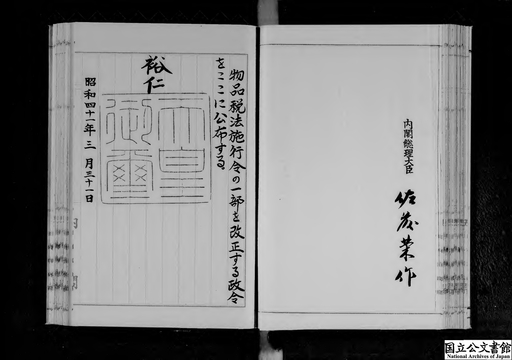 内閣総理大臣
佐藤栄作
物品税法施行令の一部を改正する政令
をここに公布する
裕仁
天皇御璽
昭和四十一年三月三十一日
国立公文書館
National Archives of Japan